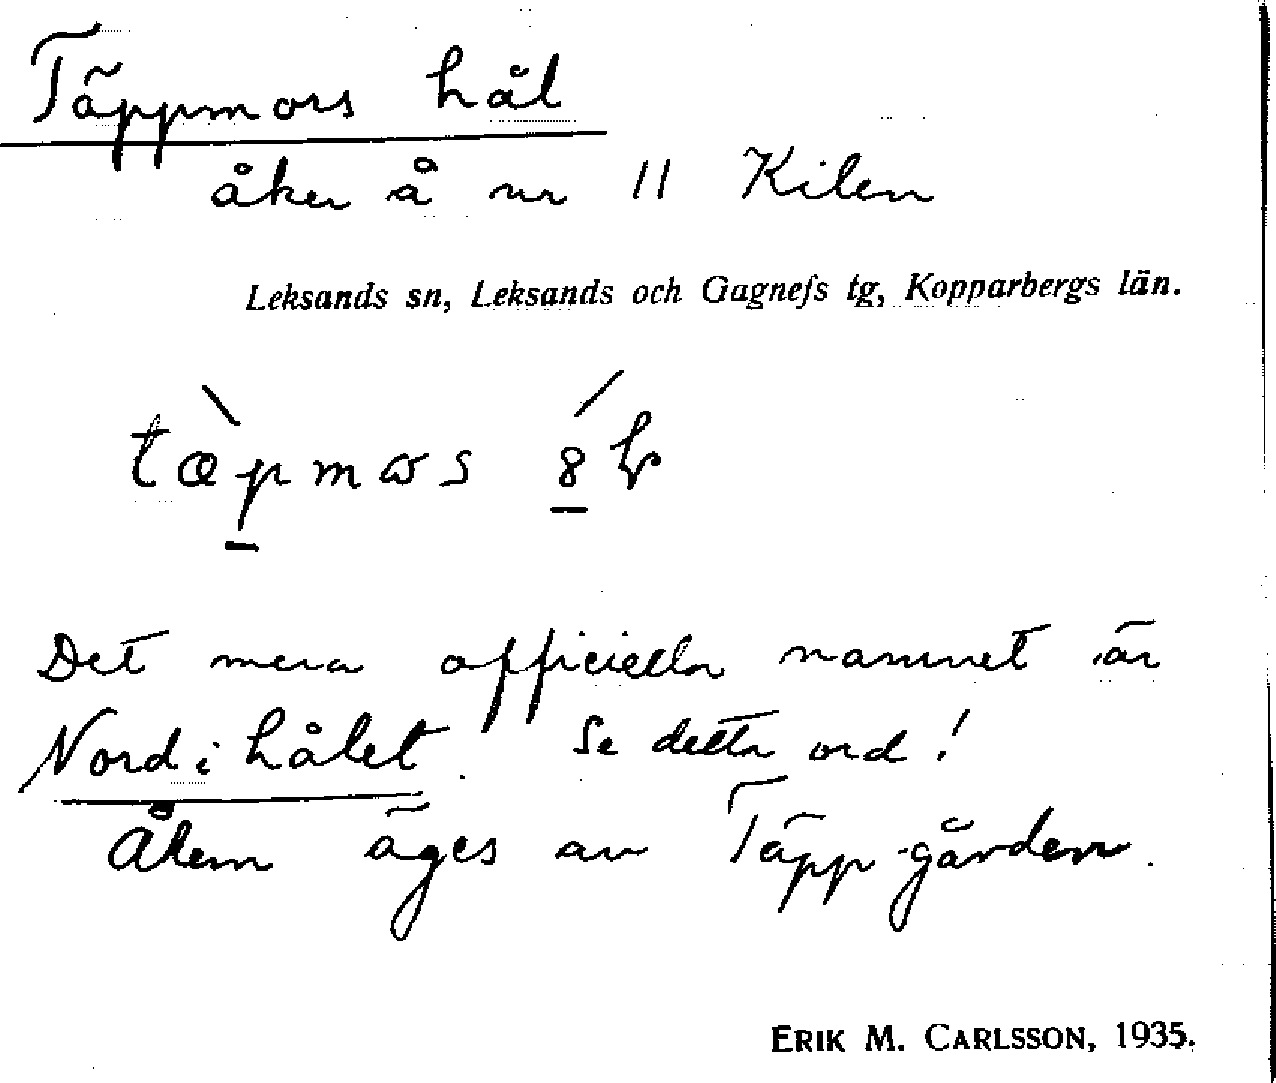 Täppmors hål
åker å nr 11 Kilen
Leksands sn, Leksands och Gagnefs tg, Kopparbergs län.
Det mera officiella namnet är
Nord i hålet. Se detta ord!
Åkern äges av Täpp-gården.
ERIK M. CARLSSON, 1935.